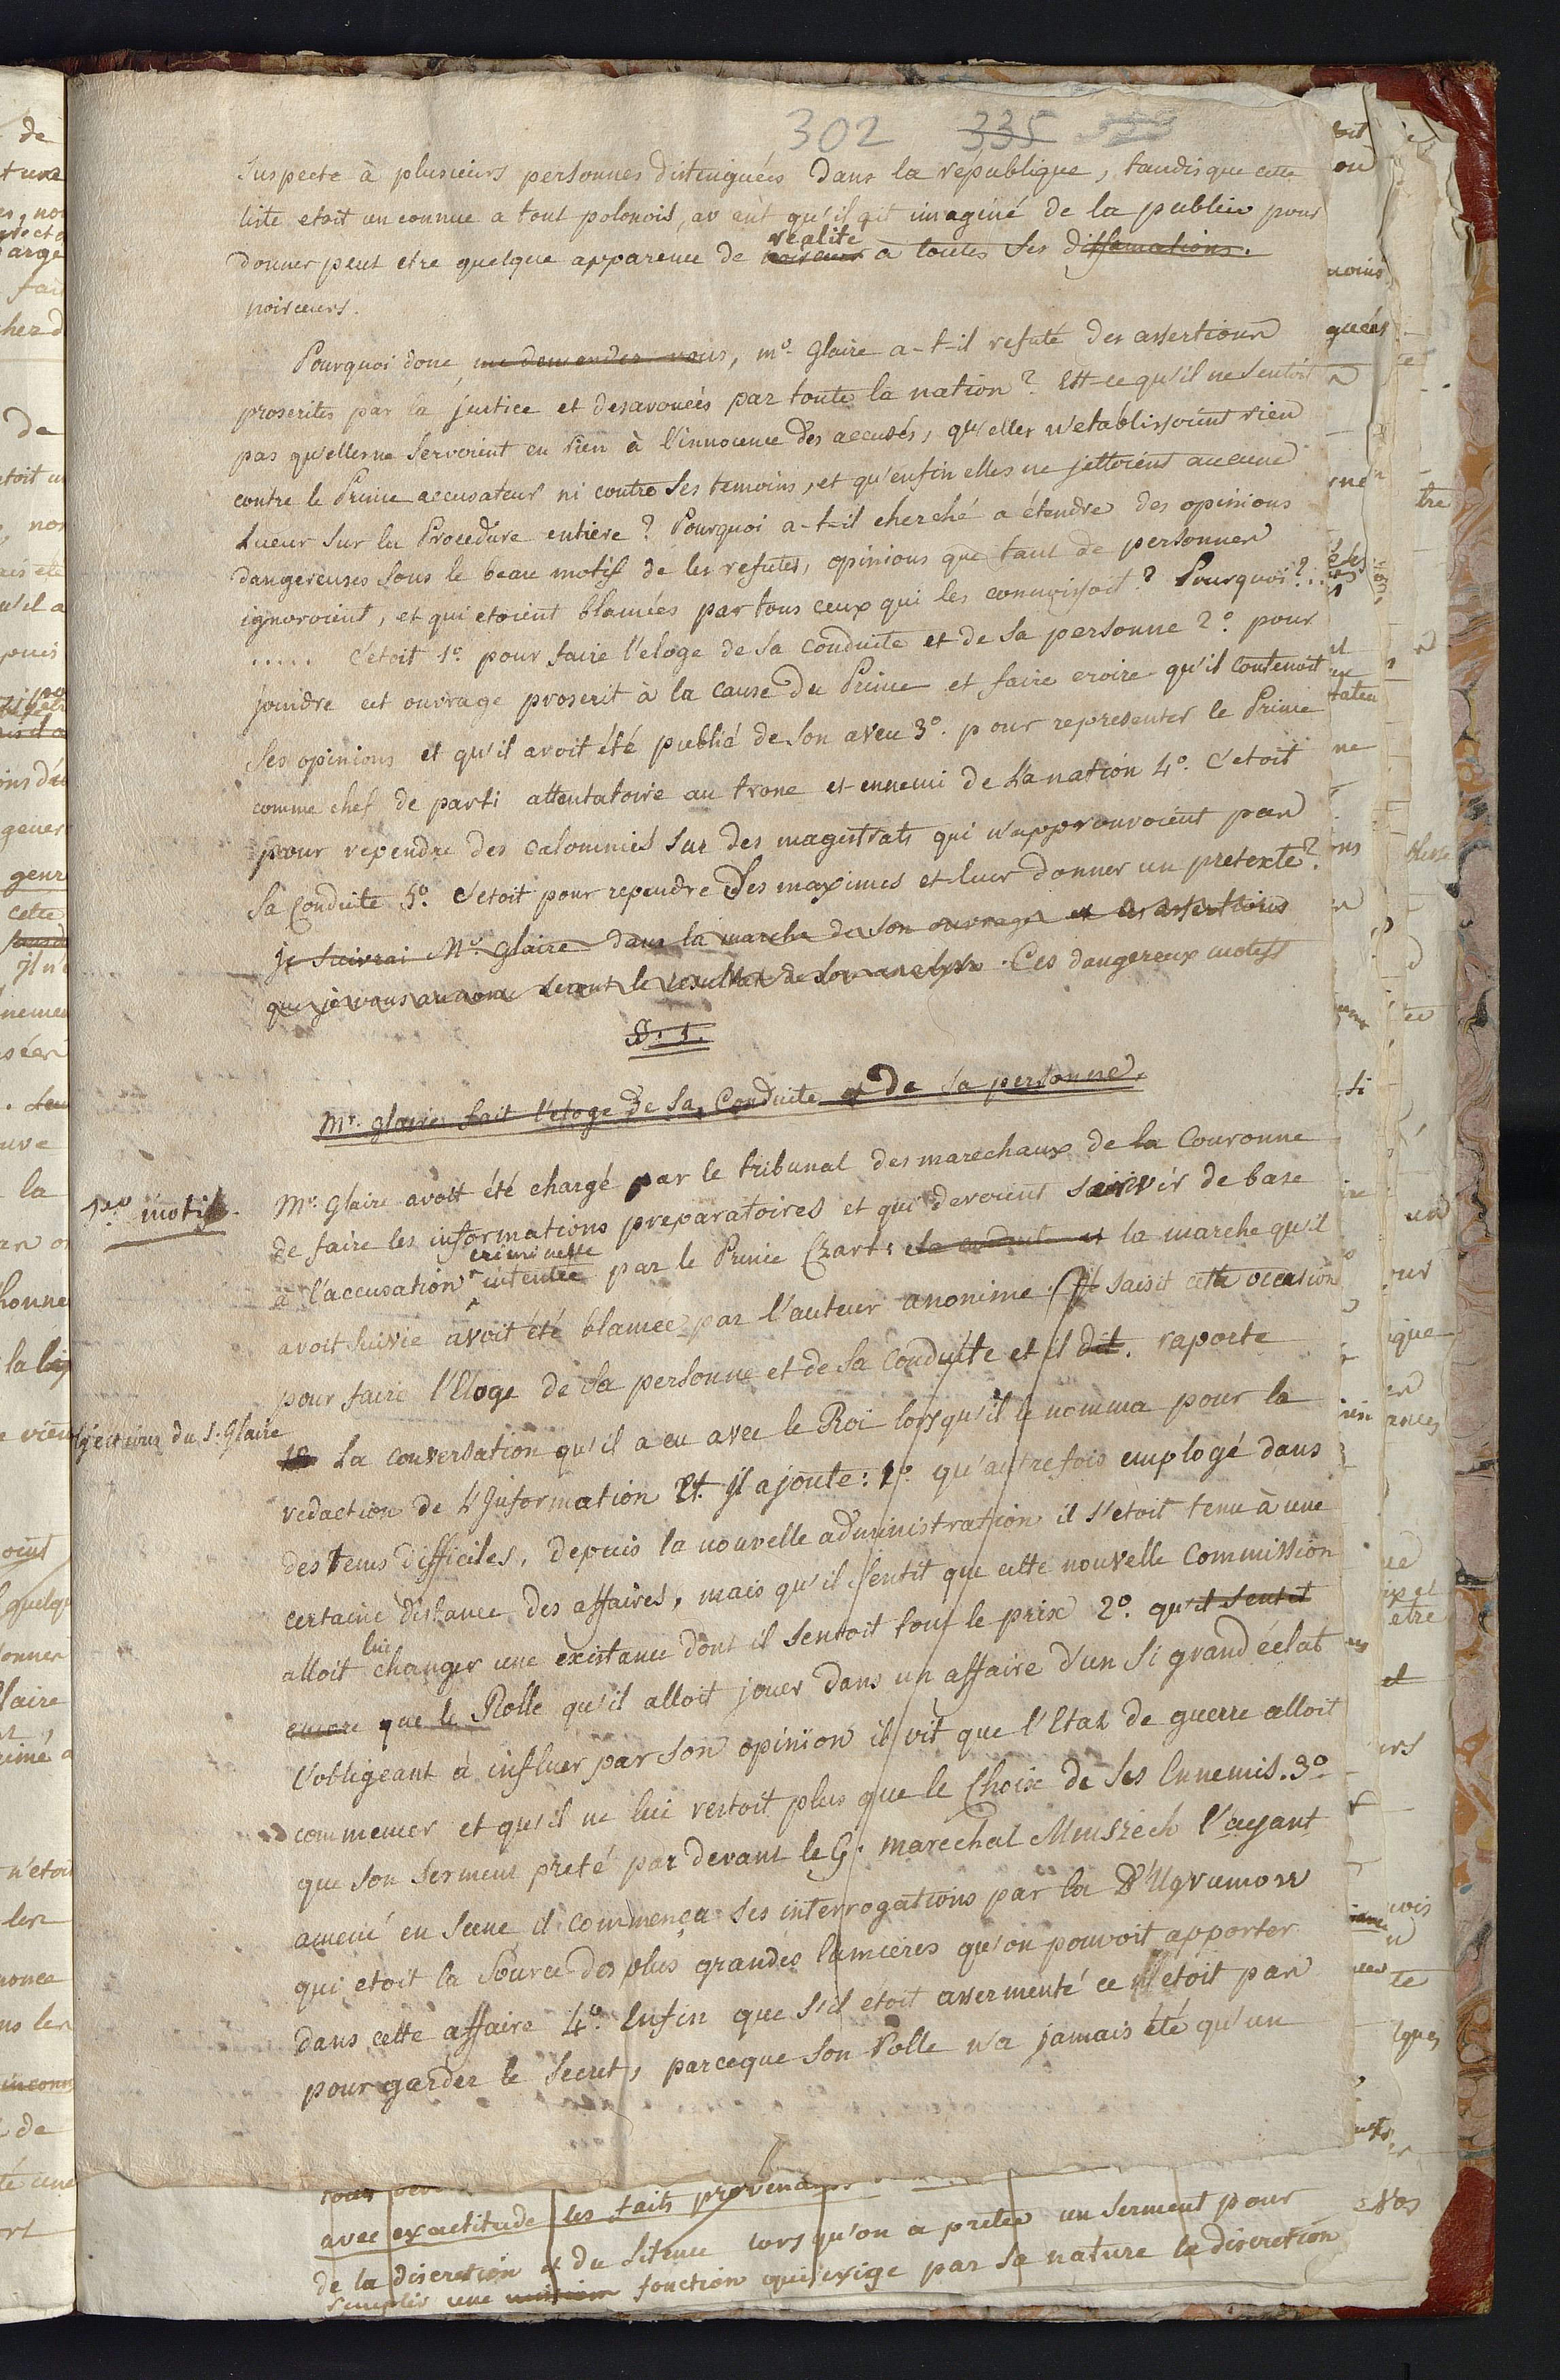 302 335
suspecte à plusieurs personnes distinguées dans la république, tandis que cette
liste etoit un connue a tout polonois, av ent qu'il ait imaginé de la publier pour
donner peut etre quelque apparence de noirceur réalité à toutes ses diffamations.
noirceurs.
Pourquoi donc, me demandez vous, mr. Glaire a-t-il refuté des assertions
proscrites par la justice et desavouées par toute la nation? Est-ce qu'il ne sentoit
pas qu'elles ne servoient en rien à l'innocence des accusés, qu'elles n'etablissoient rien
contre le Prince accusateur ni contre ses temoins, et qu'enfin elles ne jettoient aucune
Lueur sur la Procedure entière? Pourquoi a-t-il cherché a étendre des opinions
dangereuses sous le beau motif de les refuter, opinions que tant de personnes
ignoroient, et qui etoient blamées par tous ceux qui les connoissoit? Pourquoi?..
..... C'etoit 1º pour faire l'eloge de sa conduite et de sa personne 2º. pour
joindre cet ouvrage proscrit à la cause du Prince et faire croire qu'il contenoit
ses opinions et qu'il avoit été publié de son aveu 3º. pour representer le Prince
comme chef de parti attentatoire au trone et ennemi de la nation 4º. C'etoit
pour rependre des calomnies sur des magistrats qui n'approuvoient pas
sa conduite 5º. c'etoit pour rependre des maximes et leur donner un pretexte?
je suivrai Mr. Glaire dans la marche de son ouvrage et les assertions
que je vous annonce seront le resultat de son analyse. Ces dangereux motifs
§. 1.
Mr. Glaire fait l'eloge de sa Conduite et de sa personne.
1er motif.
Mr. Glaire avoit été chargé par le tribunal des marechaux de la Couronne
de faire les informations preparatoires et qui devoient servir de base
à l'accusation criminelle intentée par le Prince Czart: sa conduite et la marche qu'il
avoit suivie avoit été blamée par l'auteur anonime. Il saisit cette occasion
pour faire l'Eloge de sa personne et de sa conduite et il dit. raporte
du S. Glaire
1º La conversation qu'il a eu avec le Roi lorsqu'il le nomma pour la
redaction de l'Information Et. Il ajoute: 1º. qu'autrefois emploié dans
des tems difficiles, depuis la nouvelle administration il s'étoit tenu à une
certaine distance des affaires, mais qu'il sentit que cette nouvelle Commission
alloit lui changer une existance dont il sentoit tout le prix 2º. qu'il sentit
encore que le Rolle qu'il alloit jouer dans un affaire d'un si grand éclat
l'obligeant à influer par son opinion il vit que l'Etat de guerre alloit
commencer et qu'il ne lui restoit plus que le Choix de ses Ennemis. 3º
que son serment preté par devant le G. maréchal Mniszech l'ayant
amené en scene il commença ses interrogations par la D'Ugrumow
qui etoit la source des plus grandes lumieres qu'on pouvoit apporter
dans cette affaire 4º. Enfin que s'il étoit assermenté ce n'etoit pas
pour garder le secret, parceque son Rolle n'a jamais été qu'un
avec exactitude les faits
de la discretion et du silence lorsqu'on a preté un serment pour
remplir une mission fonction qui exige par sa nature la discretion